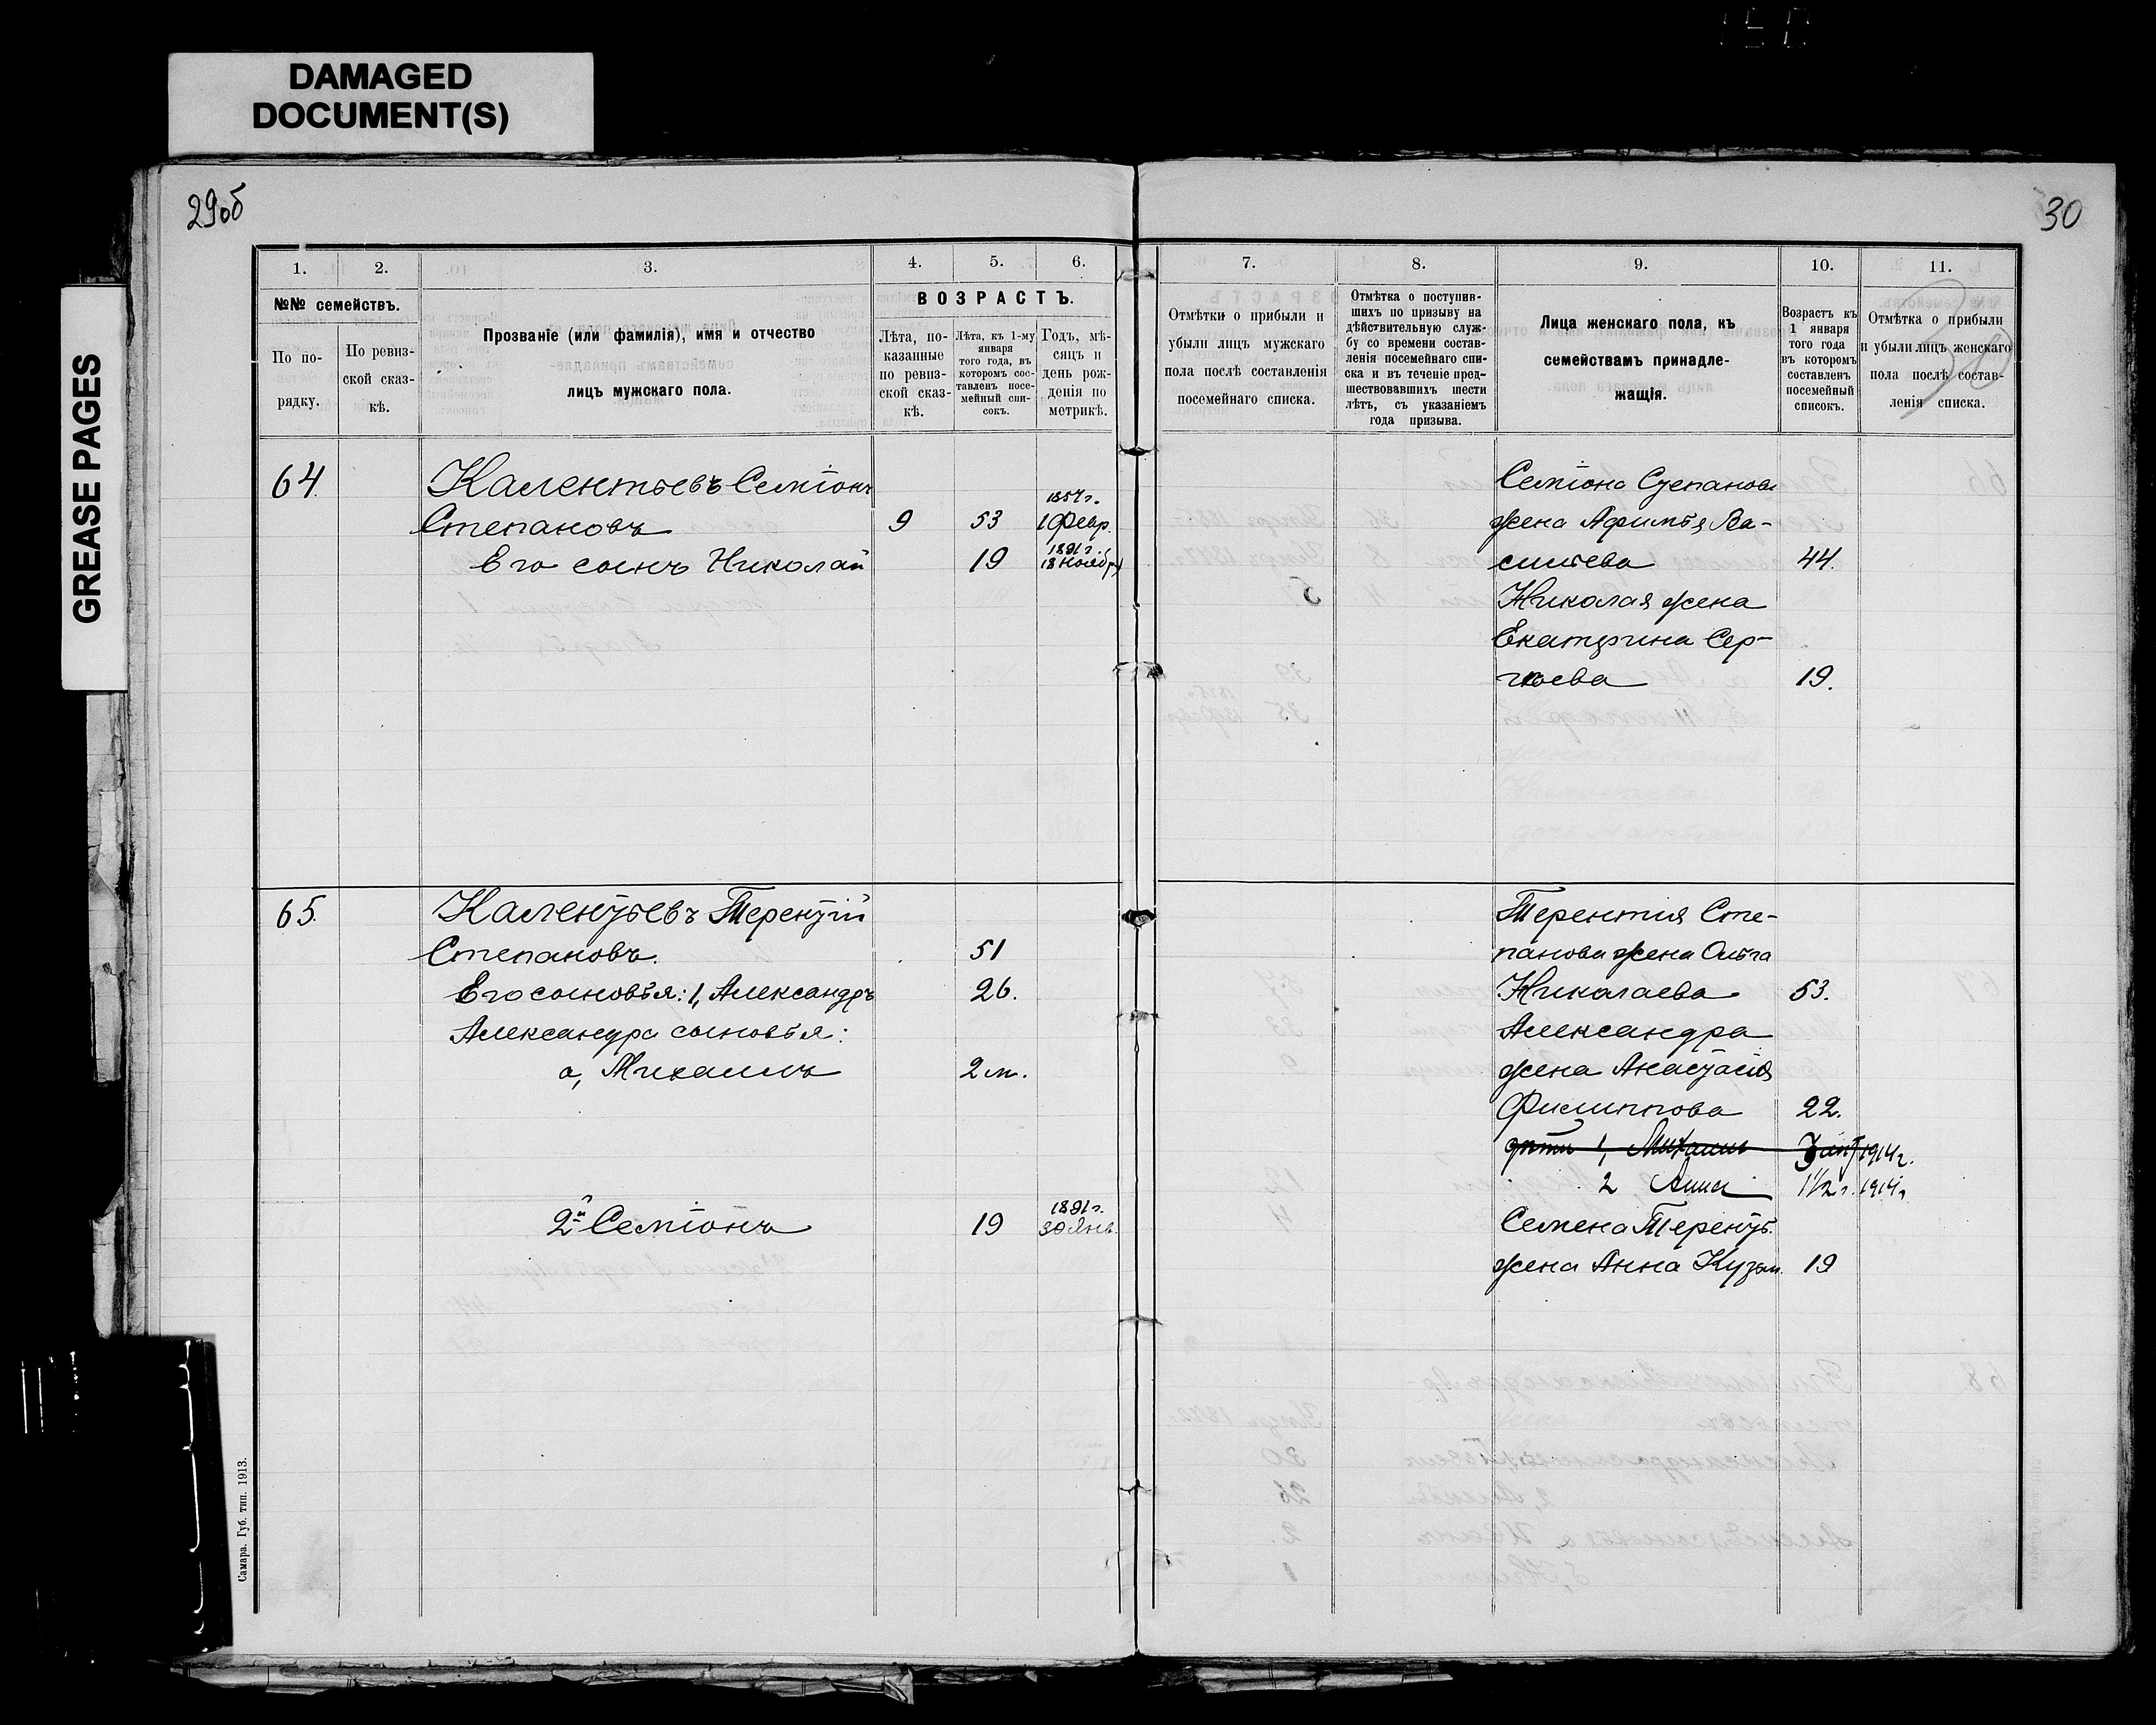 DAMAGED
DOCUMENT(S)
GREASE PAGES
29об
30
1.
2.
3.
4.
5.
6.
7.
8.
9.
10.
11.
№№ семействъ.
По по-
рядку.
По ревиз-
ской сказ-
кѣ.
Прозваніе (или фамилія), имя и отчество
лицъ мужскаго пола.
ВОЗРАСТЪ.
Лѣта, по-
казанные
по ревиз-
ской сказ-
кѣ.
Лѣта, къ 1-му
января
того года, въ
которомъ сос-
тавленъ посе-
мейный спи-
сокъ.
Годъ, мѣ-
сяцъ и
день рож-
денія по
метрикѣ.
Отмѣтки о прибыли и
убыли лицъ мужскаго
пола послѣ составленія
посемейнаго списка.
Отмѣтка о поступив-
шихъ по призыву на
дѣйствительную служ-
бу со времени состав-
ленія посемейнаго спи-
ска и въ теченіе пред-
шествовавшихъ шести
лѣтъ, съ указаніемъ
года призыва.
Лица женскаго пола, къ
семействамъ принадле-
жащія.
Возрастъ къ
1 января
того года
въ которомъ
составленъ
посемейный
списокъ.
Отмѣтка о прибыли
и убыли лицъ женскаго
пола послѣ состав-
ленія списка.
30
64. Калентьевъ Семіонъ
Степановъ 9 53 1857г. 1 Февр.
Его сынъ Николай 19 1891г. 18 Ноября
Семіона Степанова
жена Афимья Ва-
сильева 44.
Николая жена
Екатерина Сер-
гѣева 19.
65. Калентьевъ Терентій
Степановъ. 51
Его сыновья: 1, Александръ 26.
Александра сыновья:
а, Михаилъ 2 м.
2й Семіонъ 19 1891г. 30 Янв.
Терентія Сте-
панова жена Ольга
Николаева 53.
Александра
жена Анастасія
Филиппова 22.
дѣти 1, Михаилъ 3 лѣт 1914г.
2 Анна 1 1/2 г. 1914г
Семена Терентьː
жена Анна Кузьм. 19
Самара. Губ. тип. 1913.